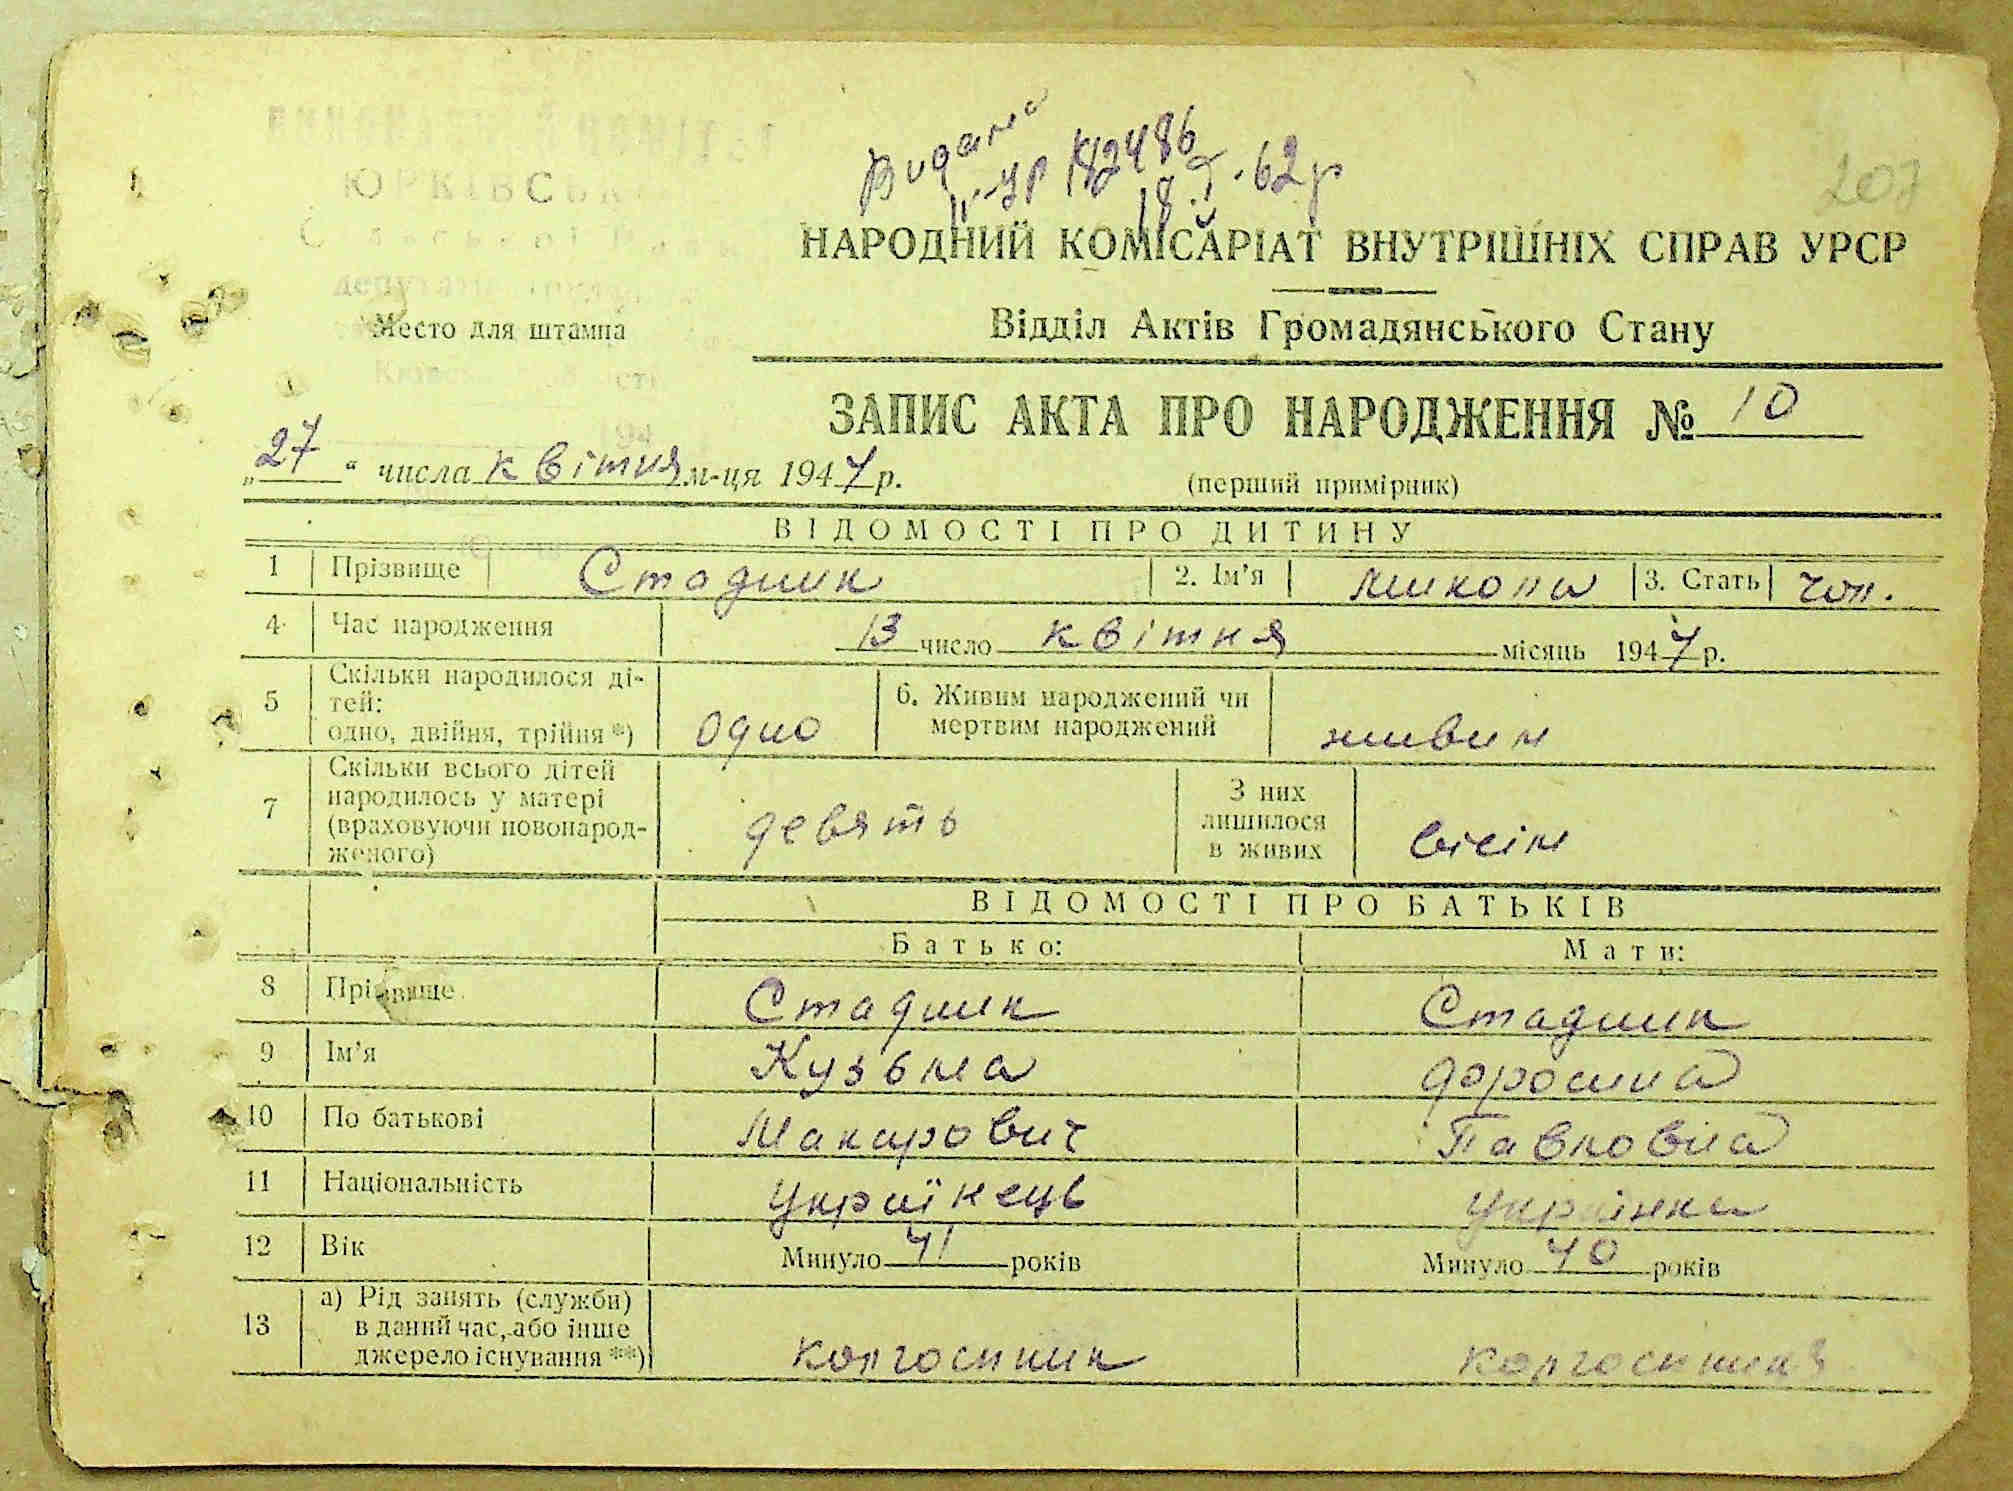 207
Видано
ІІ-УР № 12486
18.V.62р
ЮРКІВСЬК
Место для штампа
НАРОДНИЙ КОМІСАРІАТ ВНУТРІШНІХ СПРАВ УРСР
Відділ Актів Громадянського Стану
ЗАПИС АКТА ПРО НАРОДЖЕННЯ № 10
„27“ числа квітня м-ця 1947 р.
(перший примірник)
ВІДОМОСТІ ПРО ДИТИНУ
1 Прізвище Стадник 2. Ім'я Микола 3. Стать чол.
4 Час народження 13 число квітня місяць 1947 р.
5 Скільки народилося ді-
тей:
одно, двійня, трійня *) Одно
6. Живим народжений чи
мертвим народжений живим
7 Скільки всього дітей
народилось у матері
(враховуючи новонарод-
женого) девять
З них
лишилося
в живих вісім
ВІДОМОСТІ ПРО БАТЬКІВ
Батько: Мати:
8 Прізвище Стадник Стадник
9 Ім'я Кузьма Доромна
10 По батькові Макарович Павловна
11 Національність українець українка
12 Вік Минуло 41 років Минуло 40 років
13 а) Рід занять (служби)
в даний час, або інше
джерело існування **) колгоспник колгоспниця